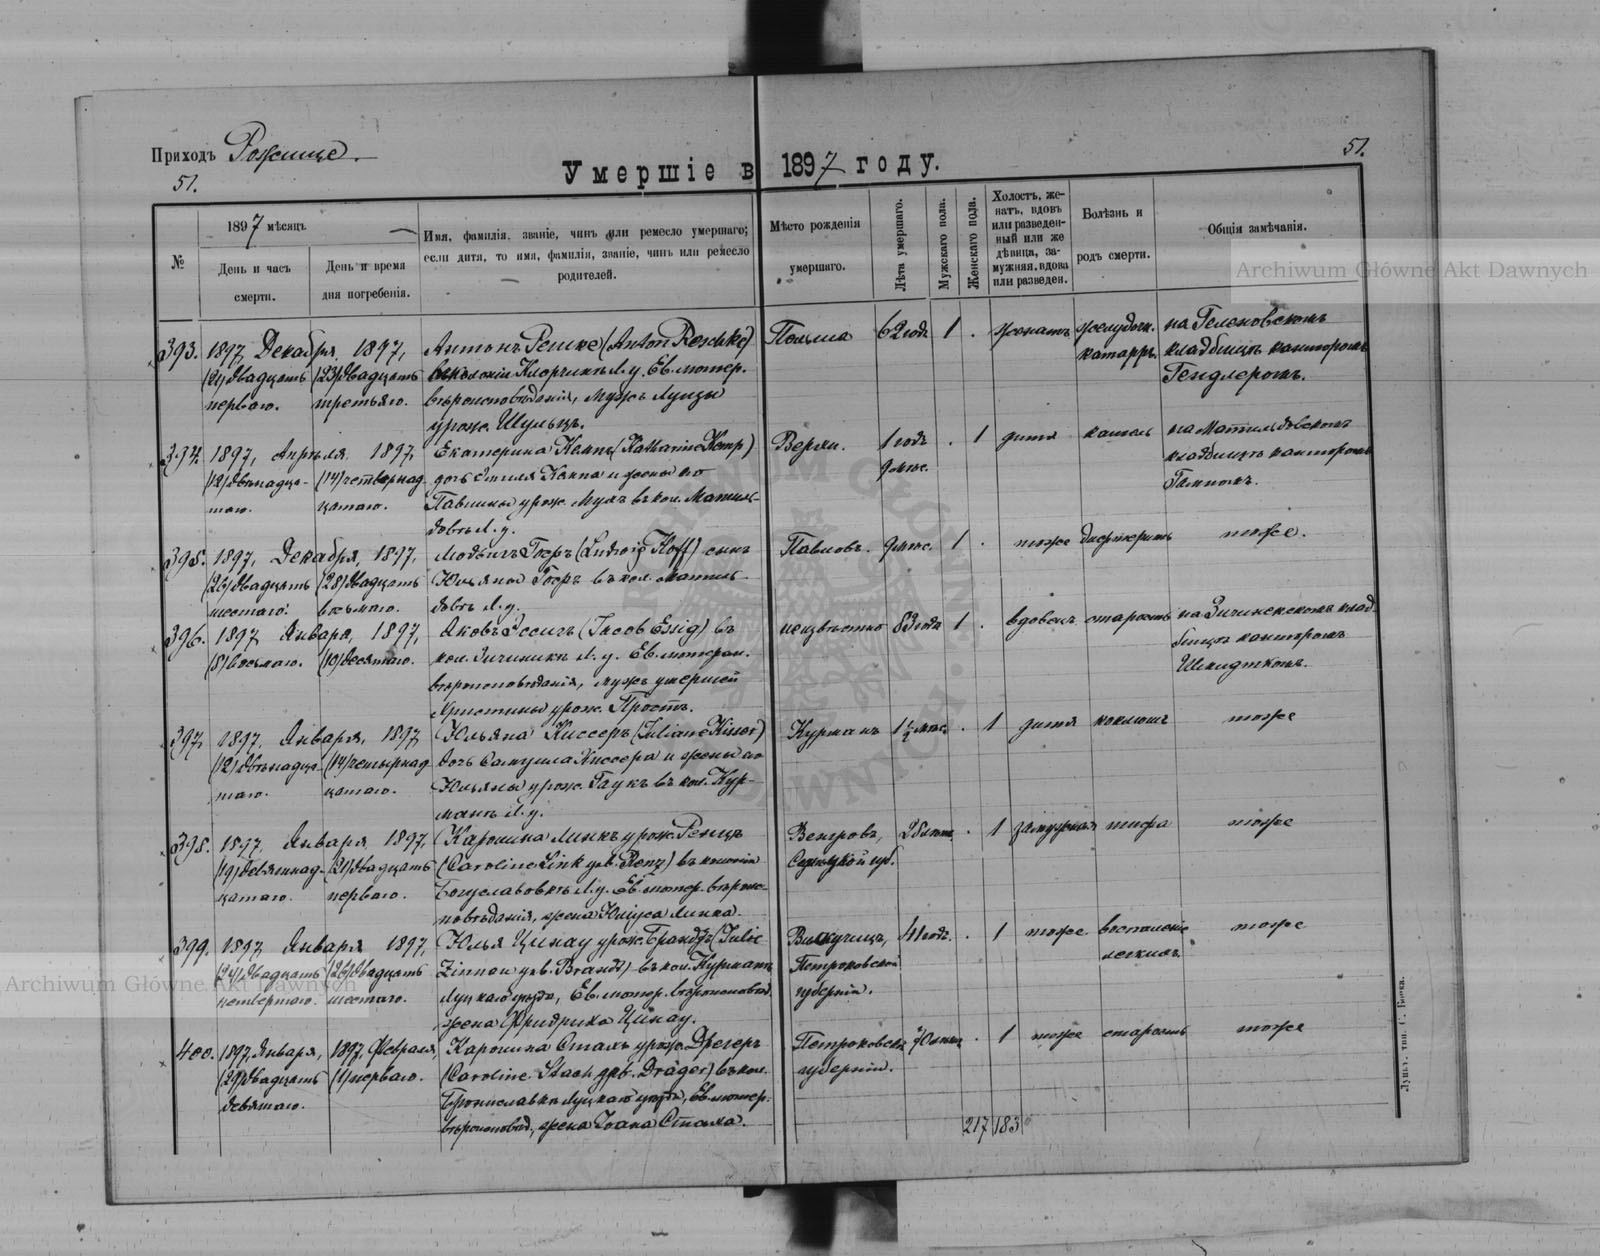 Приходъ Рожище.
51.
51.
Умершіе въ 1897 году.
№
1897 мѣсяцъ
День и часъ
смерти.
День и время
дня погребенія.
Имя, фамилія, званіе, чинъ или ремесло умершаго;
если дитя, то имя, фамилія, званіе, чинъ или ремесло
родителей.
Мѣсто рожденія
умершаго.
Лѣта умершаго.
Мужскаго пола.
Женскаго пола.
Холостъ, же-
натъ, вдовъ
или разведен-
ный или же
дѣвица, за-
мужняя, вдова
или разведен.
Болѣзнь и
родъ смерти.
Общія замѣчанія.
393. 1897, Декабря, 1897, Антонъ Решке (Anton Reschke) Польша 62 годъ 1 . женатъ желудочн. на
(21) двадцать (23) двадцать Ев. лютер. катарръ. кладбищѣ канторомъ
перваго. третьяго. вѣроисповѣданія, мужъ Луизы
урож. Шульцъ.
394. 1897, Апрѣля, 1897, Екатерина Кемпъ (Katharine Kemp) Верхи. 1 годъ . 1 дитя кашель на Матильдовскомъ
(12) двѣнадца- (14) четвернад- дочь Кемпа и жены его 9 мѣс. кладбищѣ канторомъ
таго. цатаго. Павлины урож. въ кол. Матиль-
довъ Л. у.
395. 1897, Декабря, 1897, Людвигъ Гофъ (Ludwig Hoff) сынъ Павловъ. 9 мѣс. 1 . тоже дифтеритъ тоже.
(26) двадцать (28) двадцать Юльяны Гофъ въ кол. Матиль-
шестаго. восьмаго. довъ Л. у.
396. 1897, Января, 1897, Яковъ Эссигъ (Jacob Essig) въ неизвѣстно 83 года 1 . вдовецъ старость на клад-
(8) восьмаго. (10) десятаго. кол. Л. у. Ев. лютеран. бищѣ канторомъ
вѣроисповѣданія, мужъ умершей
Христины урож. Простъ.
397. 1897, Января, 1897, Юльяна Киссеръ (Juliane Kisser) Курманъ 1½ мѣс. . 1 дитя коклюшъ тоже
(12) двѣнадца- (14) четырнад- дочь Самуила Киссера и жены его
таго. цатаго. Юльяны урож. Гаукъ въ кол. Кур-
манъ Л. у.
398. 1897, Января, 1897, Каролина Линкъ урож. Ренцъ Венгровъ, 28 лѣтъ . 1 замужняя тифъ тоже
(19) девятнад- (21) двадцать (Caroline Link geb. Renz) въ колоніи губ.
цатаго. перваго. Богуславовкѣ Л. у. Ев. лютер. вѣроис-
повѣданія, жена Юліуса Линка.
399. 1897, Января, 1897, Юлья Цинау урож. Брандъ (Julie 41 годъ. . 1 тоже воспаленіе тоже
(24) двадцать (26) двадцать Zinnau geb. Brandt) въ кол. Курманъ Петроковской легкихъ.
четвертаго. шестаго. Луцкаго уѣзда, Ев. лютер. вѣроисповѣд. губерніи.
жена Фридриха Цинау.
400. 1897, Января, 1897, Февраля, Каролина Стахъ урож. Дрегеръ Петроковской 70 лѣтъ . 1 тоже старость тоже
(29) двадцать (1) перваго. (Caroline Stach geb. Dräger) въ кол. губерніи.
девятаго. Брониславка Луцкаго уѣзда, Ев. лютер.
вѣроисповѣд., жена Іоана Стаха.
217 183
Archiwum Główne Akt Dawnych
Archiwum Główne Akt Dawnych